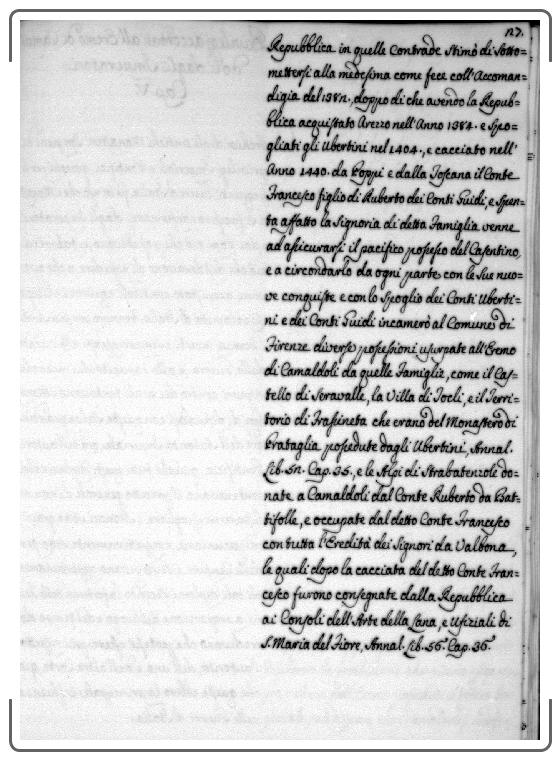 127.
Repubblica in quelle Contrade stimò di sotto=
mettersi alla medesima come fece coll'Accoman=
digia del 1382, doppo di che avendo la Repub=
blica acquistato Arezzo nell'Anno 1384. e spo=
gliati gli Ubertini nel 1404., e cacciato nell'
Anno 1440. da Poppi e dalla Toscana il Conte
Francesco figlio di Ruberto dei Conti Guidi, e spen=
ta affatto la Signoria di detta Famiglia venne
ad assicurarsi il pacifico possesso del Casentino,
e a circondarlo da ogni parte con le sue nuo=
ve conquiste e con lo spoglio dei Conti Uberti=
ni e dei Conti Guidi incamerò al Comune di
Firenze diverse possessioni usurpate all'Eremo
di Camaldoli da quelle Famiglie, come il Cas=
tello di Seravalle, la Villa di Soli, e il Terri=
torio di Frassineta che erano del Monastero di
Prataglia possedute dagli Ubertini, Annal.
Lib. 51. Cap. 35., e le Alpi di Strabatenzole do=
nate a Camaldoli dal Conte Ruberto da Bat=
tifolle, e occupate dal detto Conte Francesco
con tutta l'Eredità dei Signori da Valbona,
le quali dopo la cacciata del detto Conte Fran=
cesco furono consegnate dalla Repubblica
ai Consoli dell'Arte della Lana, e Ufiziali di
S. Maria del Fiore, Annal. Lib. 56. Cap. 36.